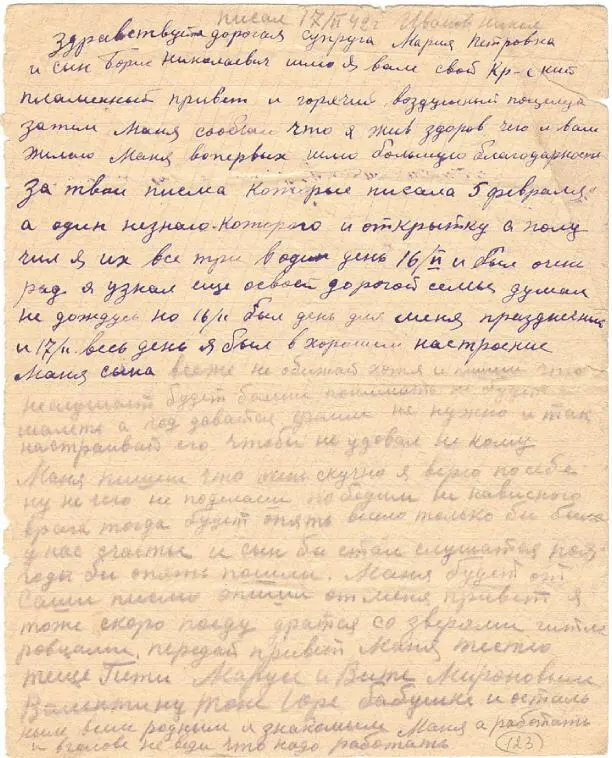 писал 17/II 42г Иванов Никол
Здравствуйте дорогая супруга Мария Петровна
и сын Борис Николаевич шлю я вам свой Кр-ский
пламенный привет и горячий воздушный поцелуй
затем Маня сообчаю что я жив здоров чего и вам
желаю Маня вопервых шлю большую благодарность
за твои писма которые писала 5 февраля
а один незнаю которого и открытку а полу
чил я их все три водин день 16/II и был очен
рад я узнал еще освоей дорогой семье думал
не дождусь но 16/II был день для меня праздничный
и 17/II весь день я был в хорошем настроение
Маня сына всеже не обижай хотя и пишеш что
неслушает будет больши понимать не будет
шалеть а под даватся не нужно и так
настраивай его чтобы не удовал не кому
Маня пишеш что скучно я верю посебе
ну не чего не поделаеш победим не нависного
врага тогда будет опять весело только бы было
у нас счастье и сын бы стал слушатся
годы бы опять пошли. Маня будеш от
саши писмо пиши от меня привет я
тоже скоро поеду дратся со зверями гитле
ровцами, передай привет Маня тестю
теще Тити Маруси и Вите Мироновым
Валентину тоже Юре бабушке и осталь
ным всем родным и знакомым Маня а работать
и вголове не веди что надо работать
123